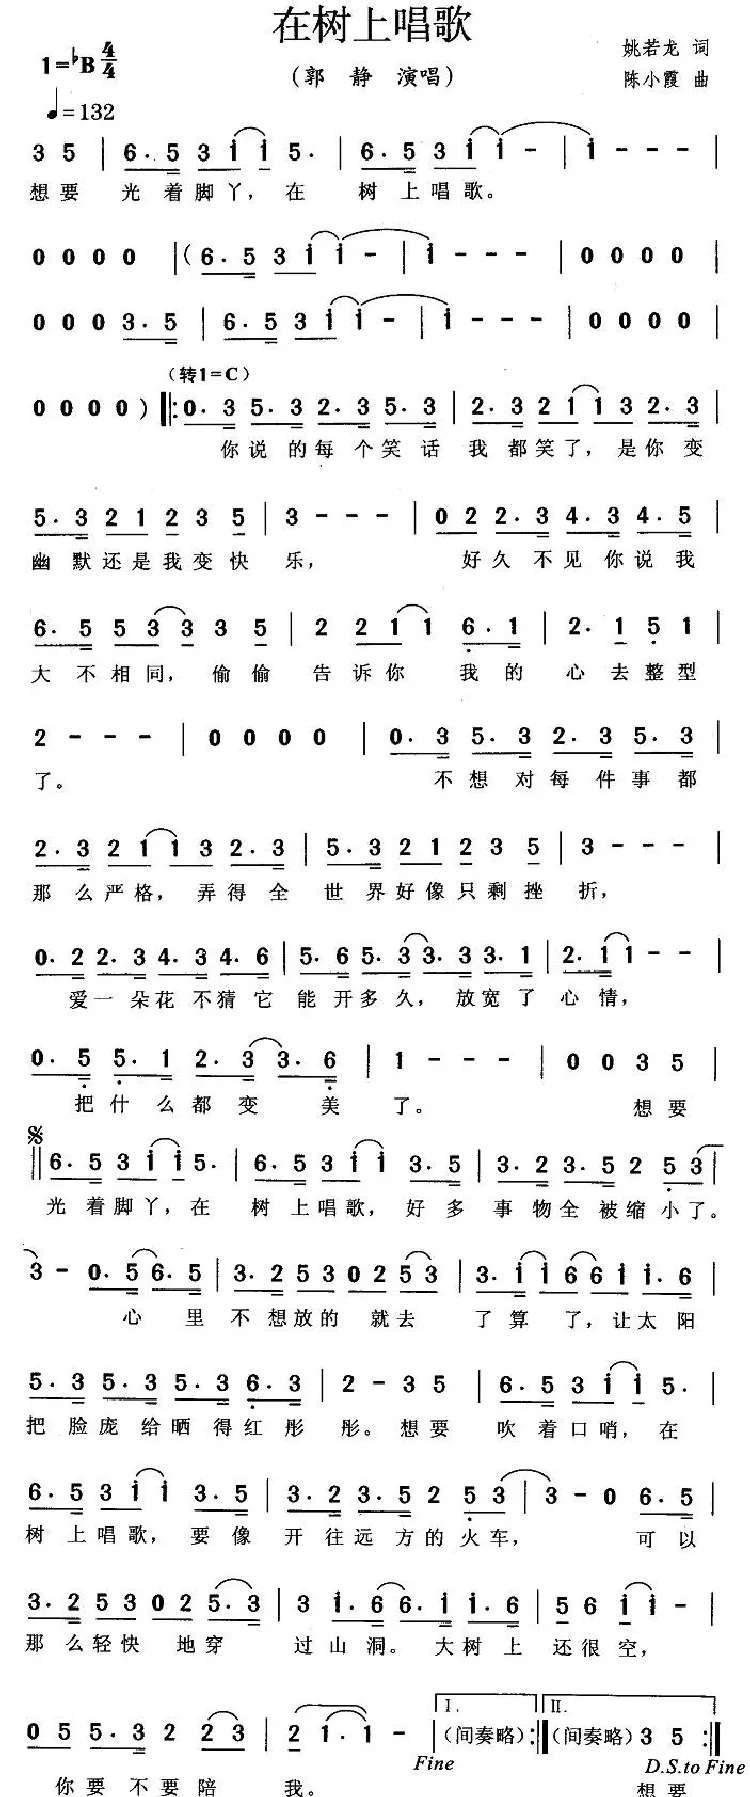 在树上唱歌
1=♭B 4/4
(郭 静 演唱)
姚若龙 词
陈小霞 曲
♩=132
3 5 | 6. 5 3 i i 5. | 6. 5 3 i i - | i - - - |
想要 光着脚丫，在 树上唱歌。
0 0 0 0 |(6. 5 3 i i - | i - - - | 0 0 0 0 |
0 0 0 3. 5 | 6. 5 3 i i - | i - - - | 0 0 0 0 |
(转1=C)
0 0 0 0 ) ‖: 0. 3 5. 3 2. 3 5. 3 | 2. 3 2 1 1 3 2. 3 |
你说的每个笑话我都笑了，是你变
5. 3 2 1 2 3 5 | 3 - - - | 0 2 2. 3 4. 3 4. 5 |
幽默还是我变快乐， 好久不见你说我
6. 5 5 3 3 3 5 | 2 2 1 1 6. 1 | 2. 1 5 1 |
大不相同，偷偷告诉你 我的心去整型
2 - - - | 0 0 0 0 | 0. 3 5. 3 2. 3 5. 3 |
了。 不想对每件事都
2. 3 2 1 1 3 2. 3 | 5. 3 2 1 2 3 5 | 3 - - - |
那么严格，弄得全世界好像只剩挫折，
0. 2 2. 3 4. 3 4. 6 | 5. 6 5. 3 3. 3 3. 1 | 2. 1 1 - - |
爱一朵花不猜它能开多久，放宽了心情，
0. 5 5. 1 2. 3 3. 6 | 1 - - - | 0 0 3 5 |
把什么都变美了。 想要
‖ 6. 5 3 i i 5. | 6. 5 3 i i 3. 5 | 3. 2 3. 5 2 5 3 |
光着脚丫，在树上唱歌，好多事物全被缩小了。
3 - 0. 5 6. 5 | 3. 2 5 3 0 2 5 3 | 3. i i 6 6 i i. 6 |
心里不想放的就去了算了，让太阳
5. 3 5. 3 5. 3 6. 3 | 2 - 3 5 | 6. 5 3 i i 5. |
把脸庞给晒得红彤彤。想要 吹着口哨，在
6. 5 3 i i 3. 5 | 3. 2 3. 5 2 5 3 | 3 - 0 6. 5 |
树上唱歌，要像开往远方的火车， 可以
3. 2 5 3 0 2 5. 3 | 3 i. 6 6. i i. 6 | 5 6 i i - |
那么轻快地穿过山洞。大树上还很空，
I. II.
0 5 5. 3 2 2 3 | 2 1. 1 - |(间奏略) :‖(间奏略) 3 5 :‖
Fine D.S.to Fine
你要不要陪我。 想要